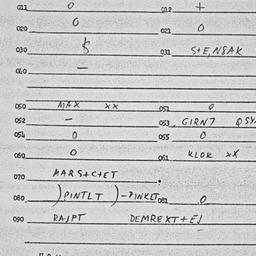 011 0 012 +
020 0 021 0
030 031 S+E,NSAK
040 —
050 MAX xx 051 0
052 — 053 GIRN7
054 0 055 0
060 0 061 KLOK xX
070 MARS+C+ET
080 )PINTLT )-PINKLT 081 0
090 RAJPT DEMREXT+EJ